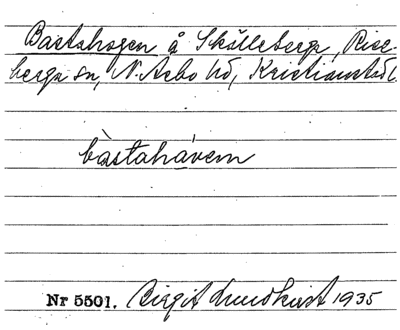 Bastahagen å Skälleberga, Rise-
berga sn, N. Åsbo hd, Kristianstads l.
bàstahávem
Nr 5501. Birgit Lundkvist 1935